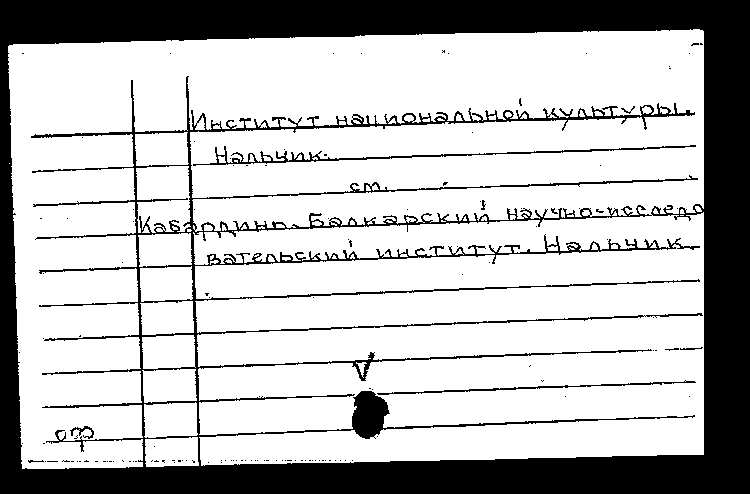 Институт национальной культуры.
Нальчик.
см.
Кабардино-Балкарский научно-исследо
вательский институт. Нальчик.
оф